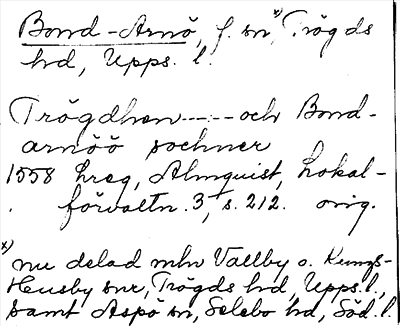 Bond-Arnö, f. sn x) Trögds
hd, Upps. l.
Trögdhen ---- och Bond-
arnöö sochner
1558 hreg, Almquist, Lokal-
förvaltn. 3, s. 212. orig.
x) nu delad mln Vallby o. Kungs-
Husby snr, Trögds hd, Upps. l.,
samt Aspö sn, Selebo hd, Söd. l.